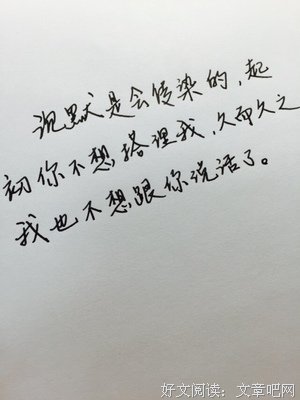 沉默是会传染的，起
初你不想搭理我，久而久之
我也不想跟你说话了。
好文阅读：文章吧网